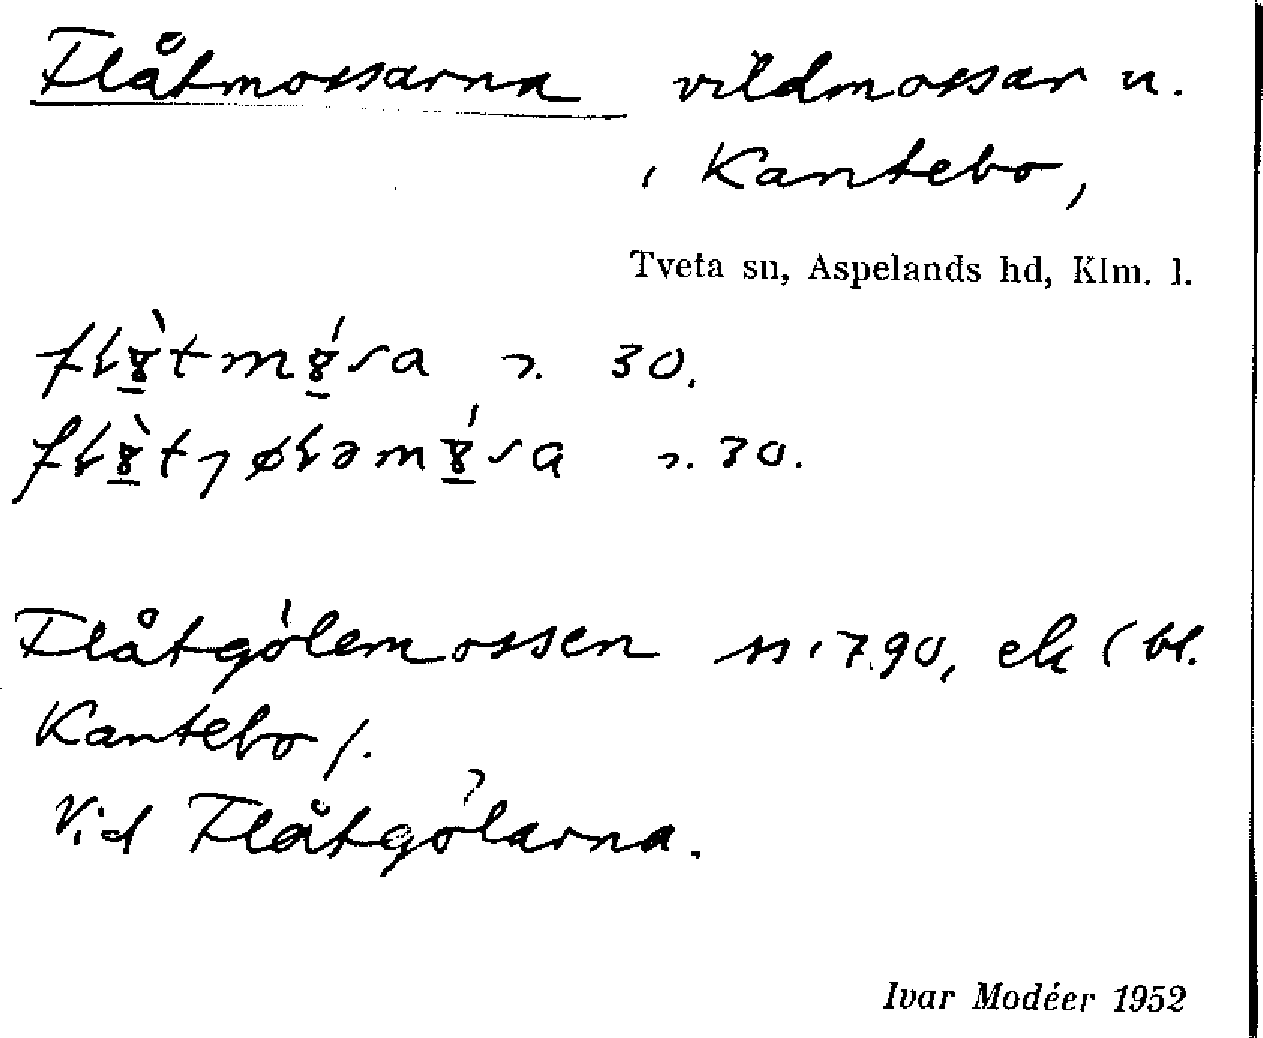 Flåtmossarna vildmossar u.
i Kantebo,
Tveta sn, Aspelands hd, Klm. l.
30.
30.
Flåtgölemossen 7.90, ek (bl.
Kantebo).
Vid Flåtgölarna.
Ivar Modéer 1952